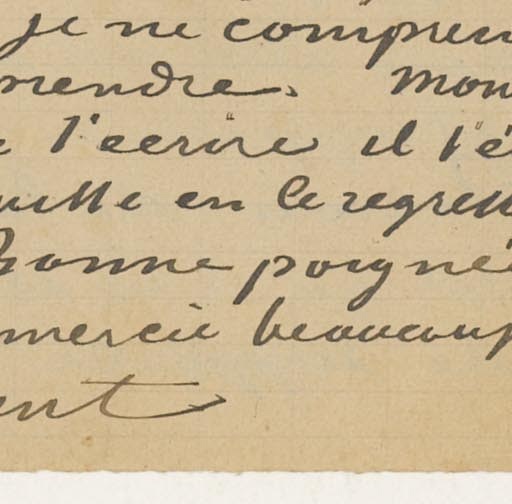 je ne compren
rendre. Mon
e l'ecrire il l'é
uitte en le regrett
Bonne poignée
merciè beaucoup
ent